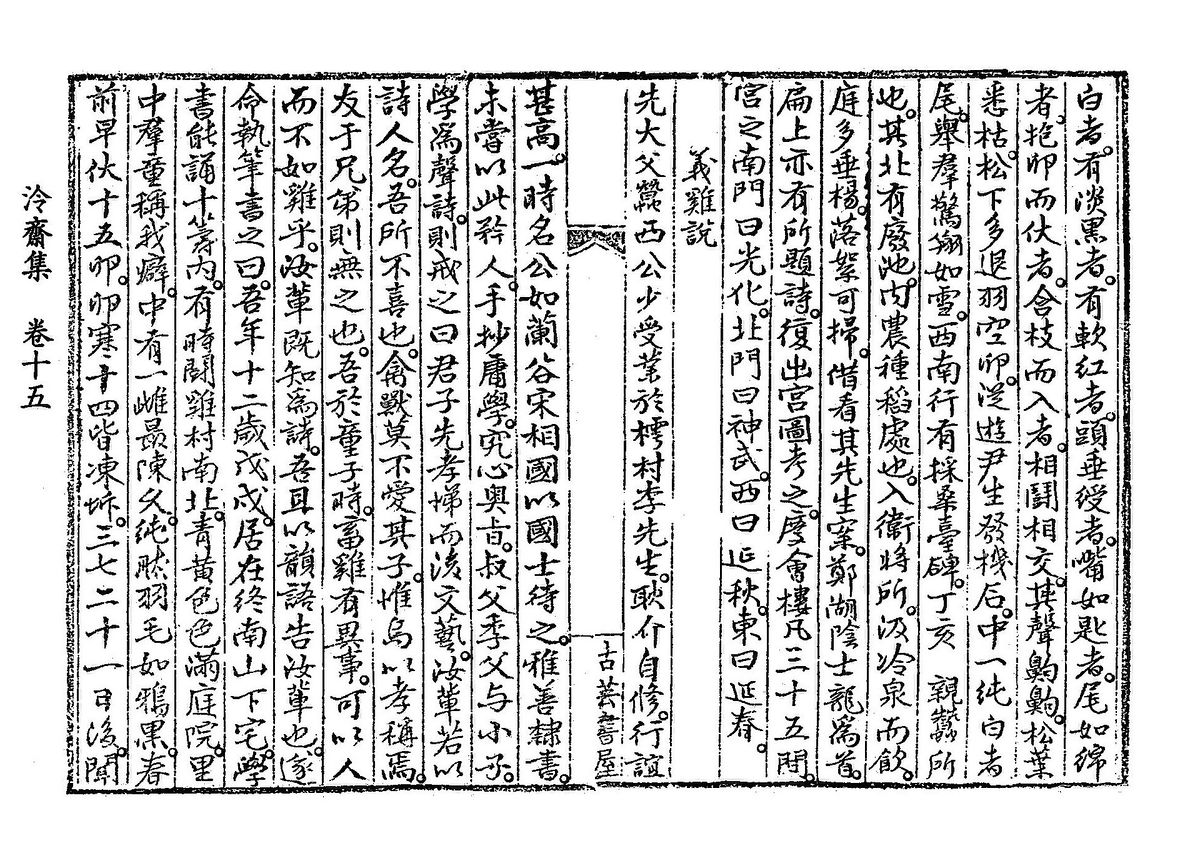 白者。有淡黑者。有軟紅者。頭垂綬者。嘴如匙者。尾如綿
者。抱卵而伏者。含枝而入者。相鬪相交。其聲齁齁。松葉
悉枯。松下多退羽空卵。從遊尹生發機石。中一純白者
尾。舉羣驚翔如雪。西南行有採桑臺碑。丁亥 親蠶所
也。其北有廢池。內農種稻處也。入衛將所。汲冷泉而飮。
庭多垂楊。落絮可掃。借看其先生案。鄭湖陰士龍爲首。
扁上亦有所題詩。復出宮圖考之。慶會樓凡三十五間。
宮之南門曰光化。北門曰神武。西曰延秋。東曰延春。
義雞說
先大父鷰西公少受業於樗村李先生。耿介自修。行誼
甚高。一時名公如蘭谷宋相國以國士待之。雅善隸書。
未嘗以此矜人。手抄庸學。究心奧旨。叔父季父与小子。
學爲聲詩。則戒之曰君子先孝悌而後文藝。汝輩若以
詩人名。吾所不喜也。禽獸莫不愛其子。惟烏以孝稱焉。
友于兄弟則無之也。吾於童子時。畜雞有異事。可以人
而不如雞乎。汝輩既知爲詩。吾且以韻語告汝輩也。遂
命執筆書之曰。吾年十二歲戊戌。居在終南山下宅。學
書能誦十籌內。有時鬪雞村南北。靑黃色色滿庭院。里
中羣童稱我癖。中有一雌最陳久。純然羽毛如鴉黑。春
前早伏十五卵。卵寒十四皆凍坼。三七二十一日後。聞
古芸書屋
泠齋集 卷十五